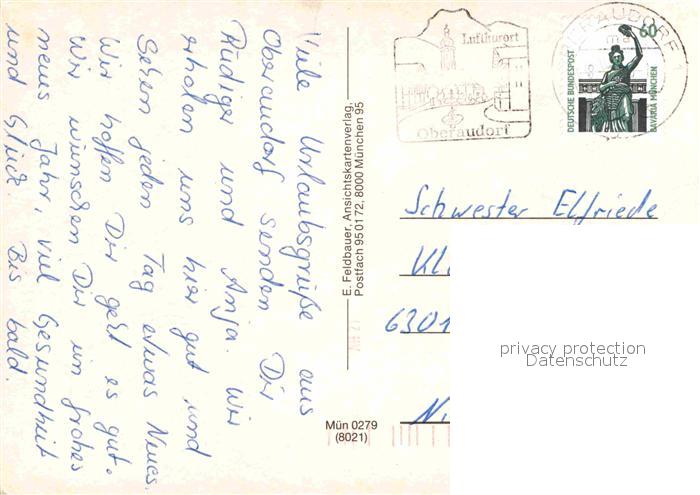 Viele Urlaubsgrüße aus
Oberaudorf senden Dir
Rüdiger und Anja. Wir
erholen uns hier gut und
sehen jeden Tag etwas Neues.
Wir hoffen Dir geht es gut.
Wir wünschen Dir im frohes
neues Jahr, viel Gesundheit
und Glück. Bis bald.
E. Feldbauer, Ansichtskartenverlag,
Postfach 950172, 8000 München 95
Mün 0279
(8021)
Luftkurort
Oberaudorf
OBERAUDORF
60
DEUTSCHE BUNDESPOST
BAVARIA MÜNCHEN
Schwester Elfriede
Kl
6301
privacy protection
Datenschutz